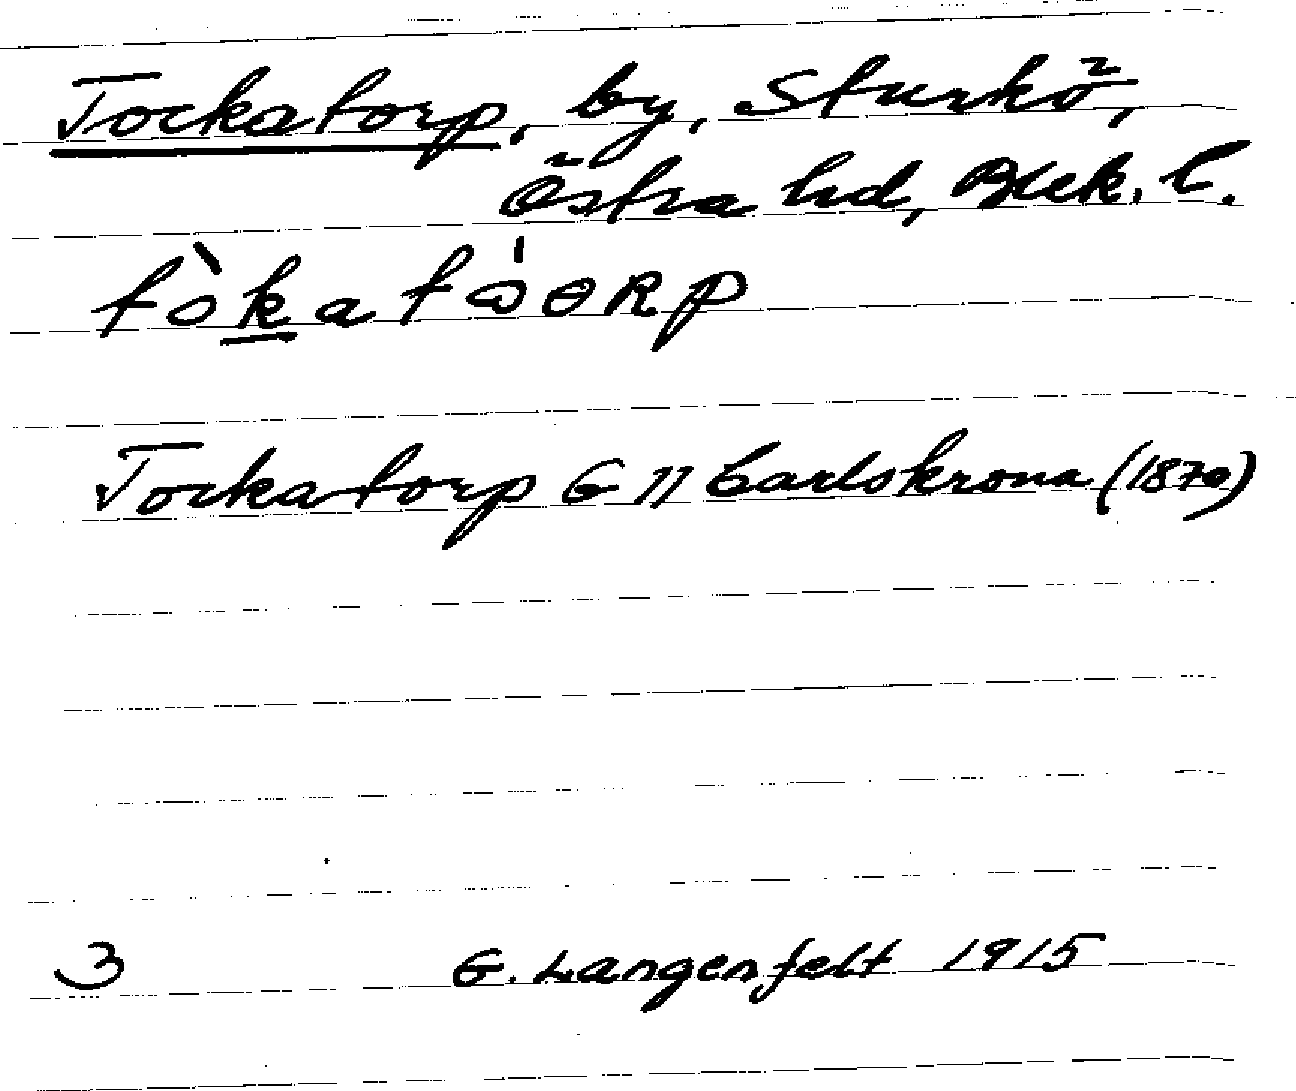 Tockatorp, by, Sturkö,
Östra hd, Blek. l.
tòkatꙍ́ɵRp
Tockatorp G 11 Carlskrona (1870)
3 G. Langenfelt 1915